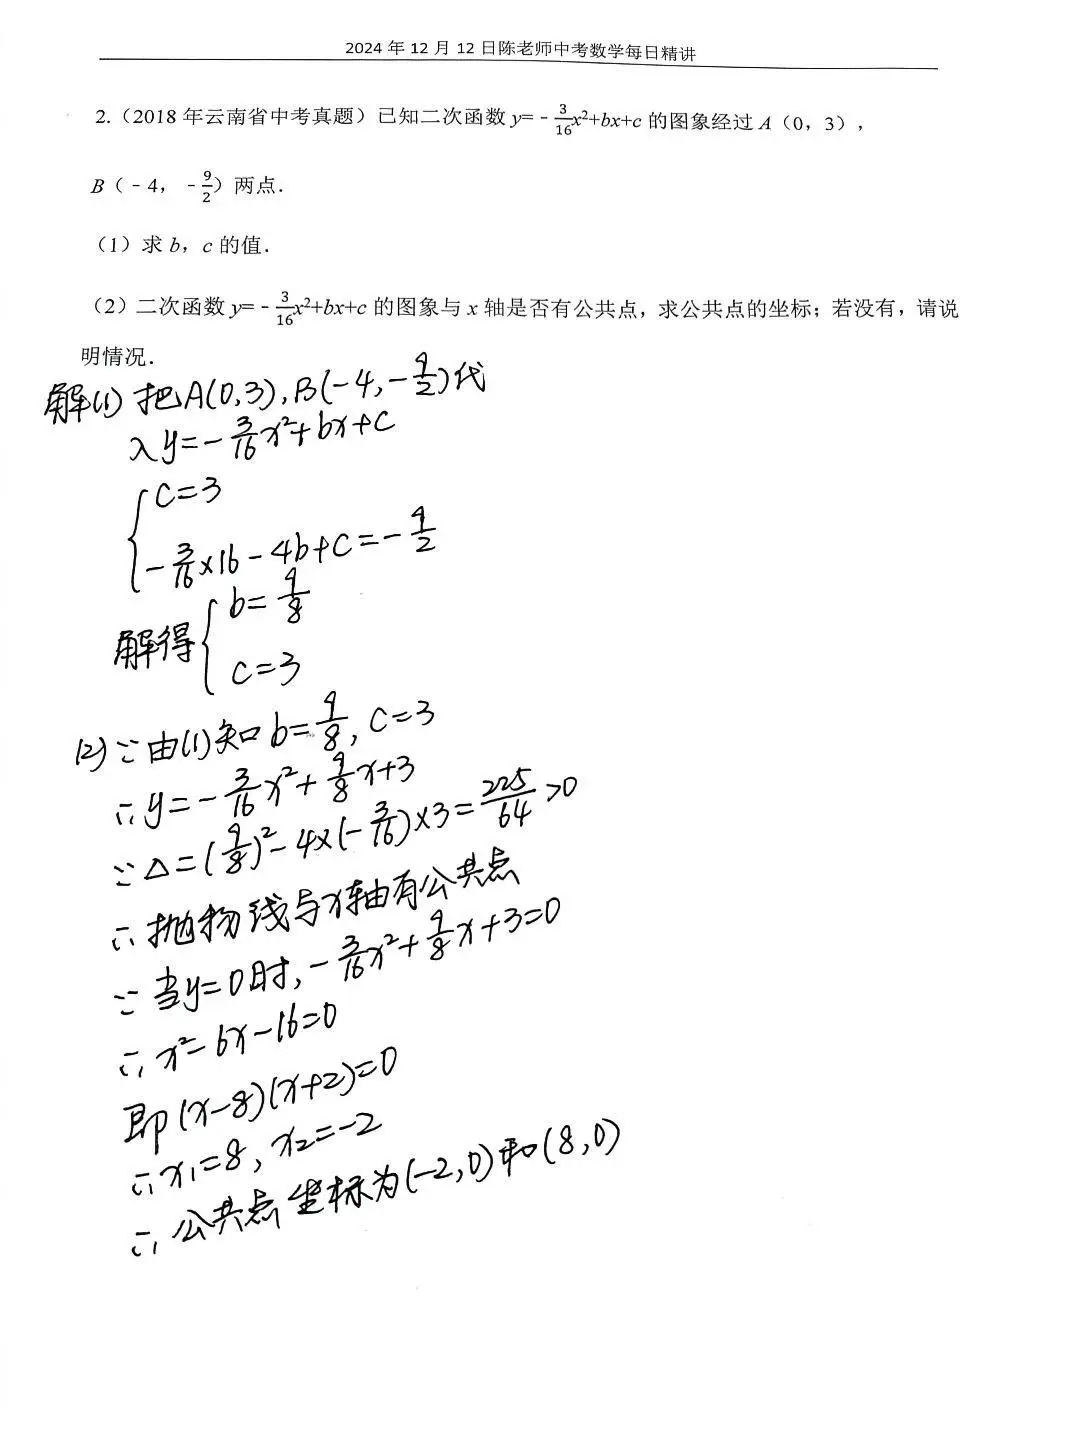 2024 年 12 月 12 日陈老师中考数学每日精讲
2.（2018 年云南省中考真题）已知二次函数 y=﹣3/16x²+bx+c 的图象经过 A（0，3），
B（﹣4，﹣9/2）两点．
（1）求 b，c 的值．
（2）二次函数 y=﹣3/16x²+bx+c 的图象与 x 轴是否有公共点，求公共点的坐标；若没有，请说
明情况．
解(1) 把A(0,3),B(-4,-9/2)代
入y=-3/16x²+bx+c
{c=3
-3/16×16-4b+c=-9/2
解得{b=9/8
c=3
(2)∵由(1)知b=9/8,c=3
∴y=-3/16x²+9/8x+3
∵△=(9/8)²-4×(-3/16)×3=225/64>0
∴抛物线与x轴有公共点
∵当y=0时,-3/16x²+9/8x+3=0
∴x²-6x-16=0
即(x-8)(x+2)=0
∴x₁=8,x₂=-2
∴公共点坐标为(-2,0)和(8,0)